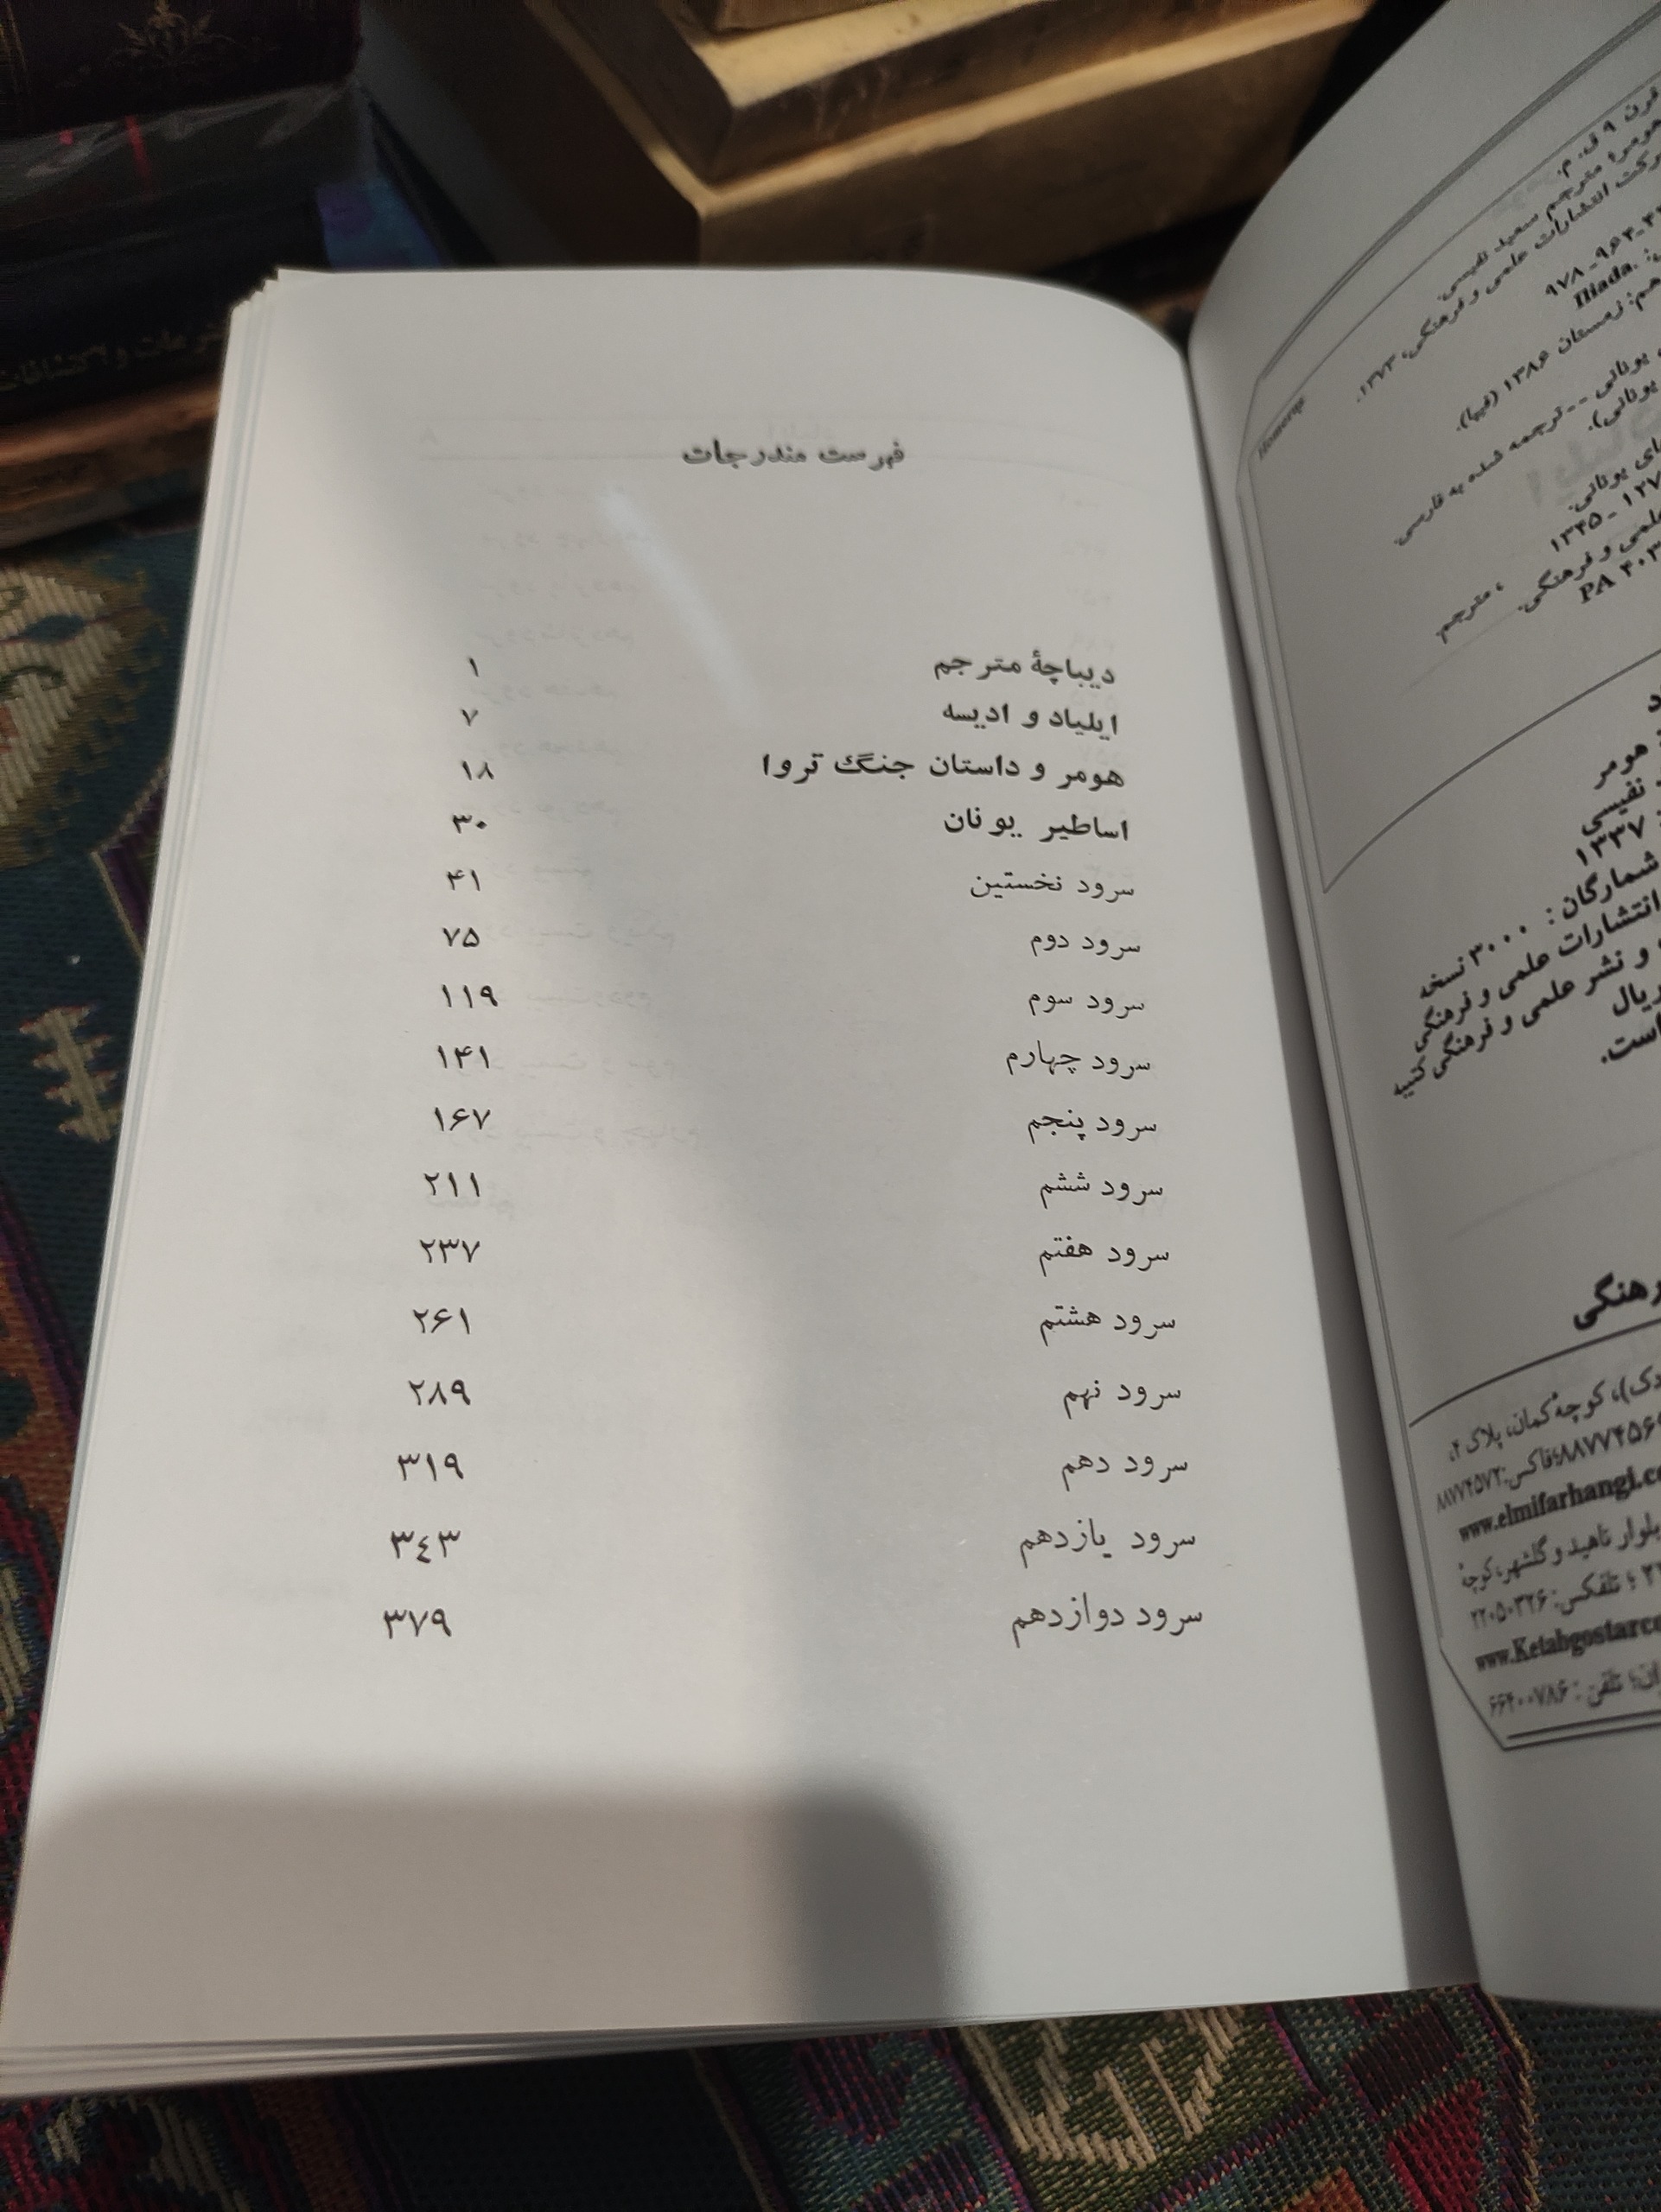 فهرست مندرجات
دیباچهٔ مترجم ۱
ایلیاد و ادیسه ۷
هومر و داستان جنگ تروا ۱۸
اساطیر یونان ۳۰
سرود نخستین ۴۱
سرود دوم ۷۵
سرود سوم ۱۱۹
سرود چهارم ۱۴۱
سرود پنجم ۱۶۷
سرود ششم ۲۱۱
سرود هفتم ۲۳۷
سرود هشتم ۲۶۱
سرود نهم ۲۸۹
سرود دهم ۳۱۹
سرود یازدهم ۳٤۳
سرود دوازدهم ۳۷۹
قرن ۹ ق. م.
مترجم سعید نفیسی.
انتشارات علمی و فرهنگی، ۱۳۷۳.
۹۷۸-۹۶۴-
Iliada.
زمستان ۱۳۸۶ (فیپا).
یونانی -- ترجمه شده به فارسی
یونانی).
های یونانی.
۱۳۴۵
علمی و فرهنگی.
، مترجم.
PA ۴۰۳
Homerus
هومر
نفیسی
۱۳۳۷
شمارگان : ۳۰۰۰ نسخه
انتشارات علمی و فرهنگی
و نشر علمی و فرهنگی کتیبه
ریال
است.
کوچهٔ کمان، پلاک ۴،
فاکس: ۸۸۷۷۴۵۷۲
www.elmifarhangi.co
بلوار ناهید و گلشهر، کوچهٔ
؛ تلفکس: ۲۲۰۵۰۳۲۶
www.Ketabgostarco
تلفن: ۶۶۴۰۰۷۸۶
و اکتشافات